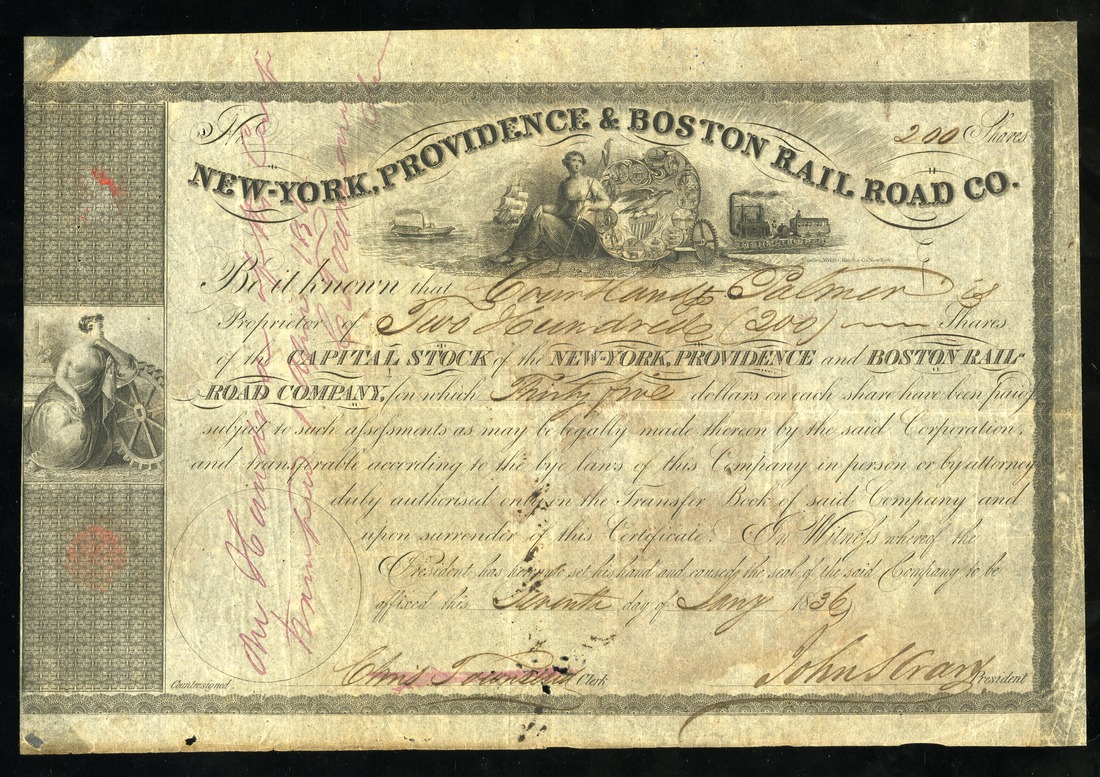 No
200 Shares
NEW-YORK, PROVIDENCE & BOSTON RAIL ROAD CO.
Be it known that Courtlandt Palmer is
Proprietor of Two Hundred (200) Shares
of the CAPITAL STOCK of the NEW-YORK, PROVIDENCE and BOSTON RAIL-
ROAD COMPANY, for which Thirty five dollars on each share have been paid
subject to such assessments as may be legally made thereon by the said Corporation,
and transferable according to the bye laws of this Company in person or by attorney
duly authorised only on the Transfer Book of said Company and
upon surrender of this Certificate. In Witness whereof the
President has hereunto set his hand and caused the seal of the said Company to be
affixed this Seventh day of Jany 1836
Countersigned Chris Townsend Clerk
John S Crary President